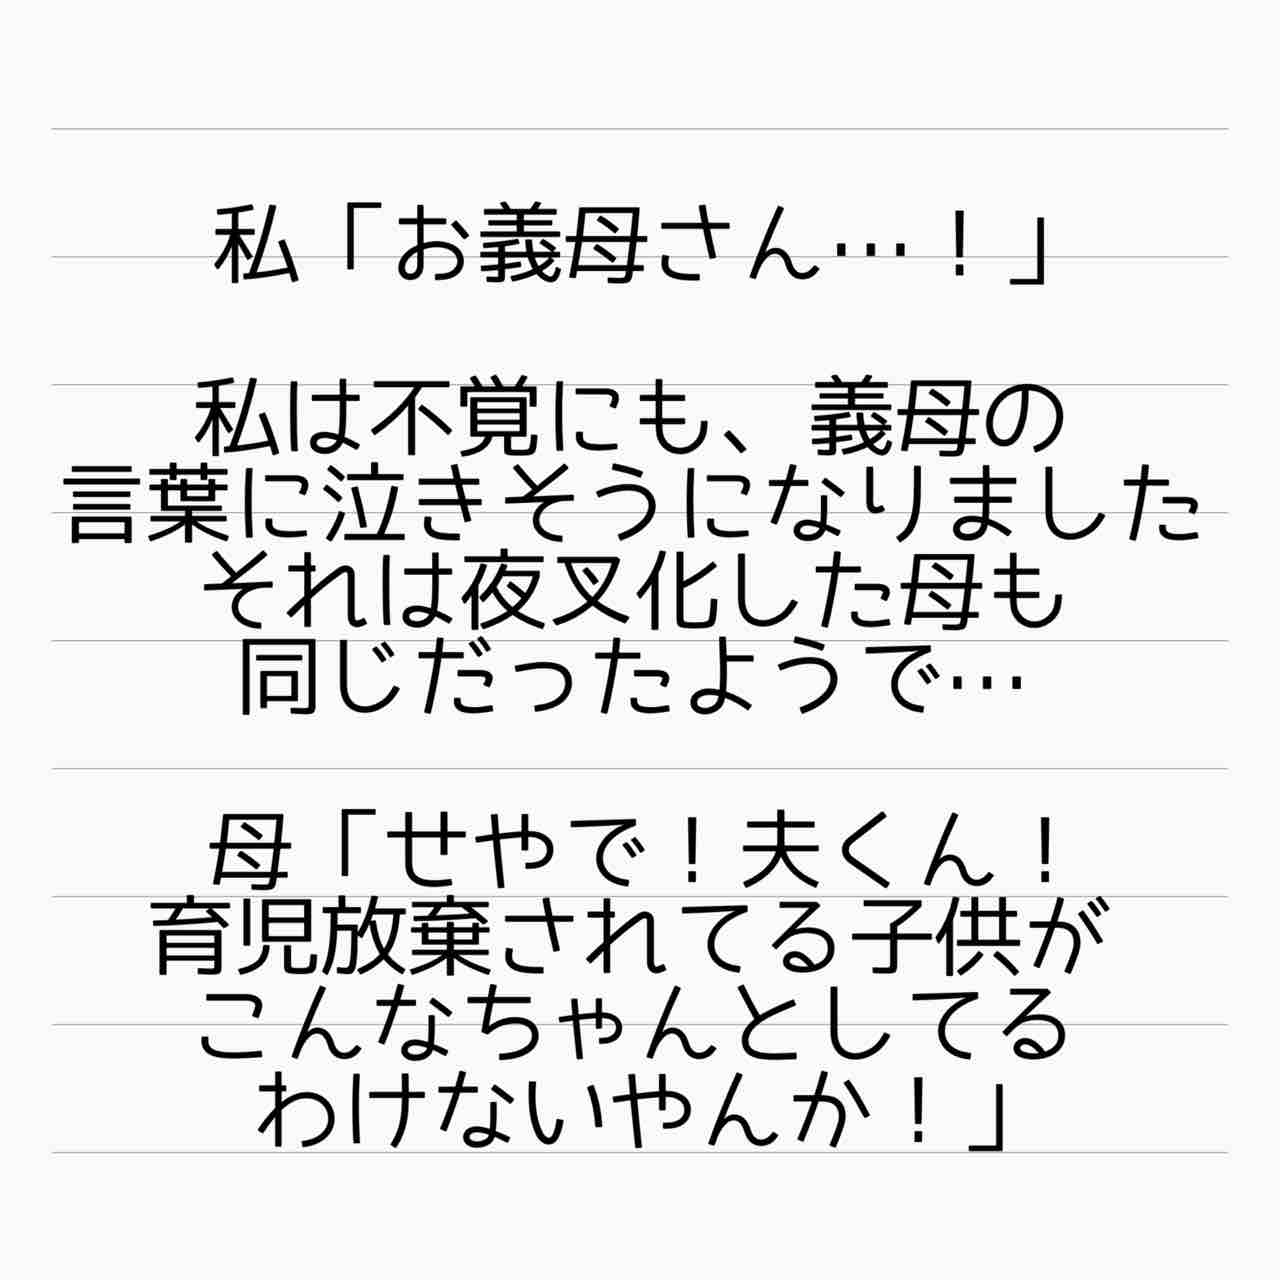 私「お義母さん…！」
私は不覚にも、義母の
言葉に泣きそうになりました
それは夜叉化した母も
同じだったようで…
母「せやで！夫くん！
育児放棄されてる子供が
こんなちゃんとしてる
わけないやんか！」